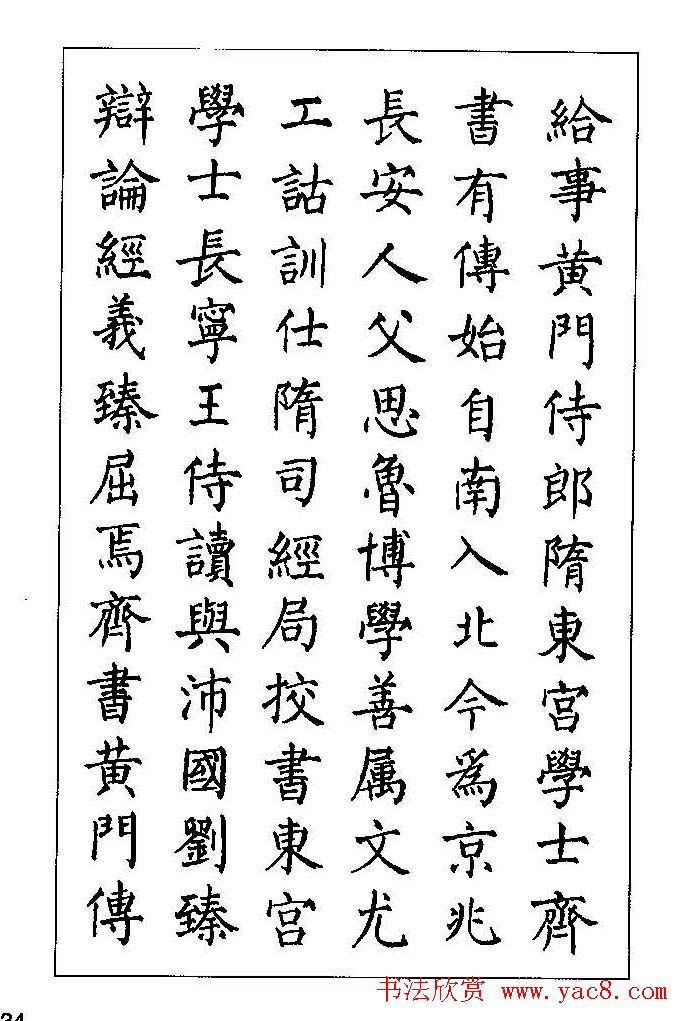 給事黄門侍郎隋東宫學士齊
書有傳始自南入北今爲京兆
長安人父思魯博學善属文尤
工詁訓仕隋司經局挍書東宫
學士長寧王侍讀與沛國劉臻
辯論經義臻屈焉齊書黄門傳
34
书法欣赏 www.yac8.com